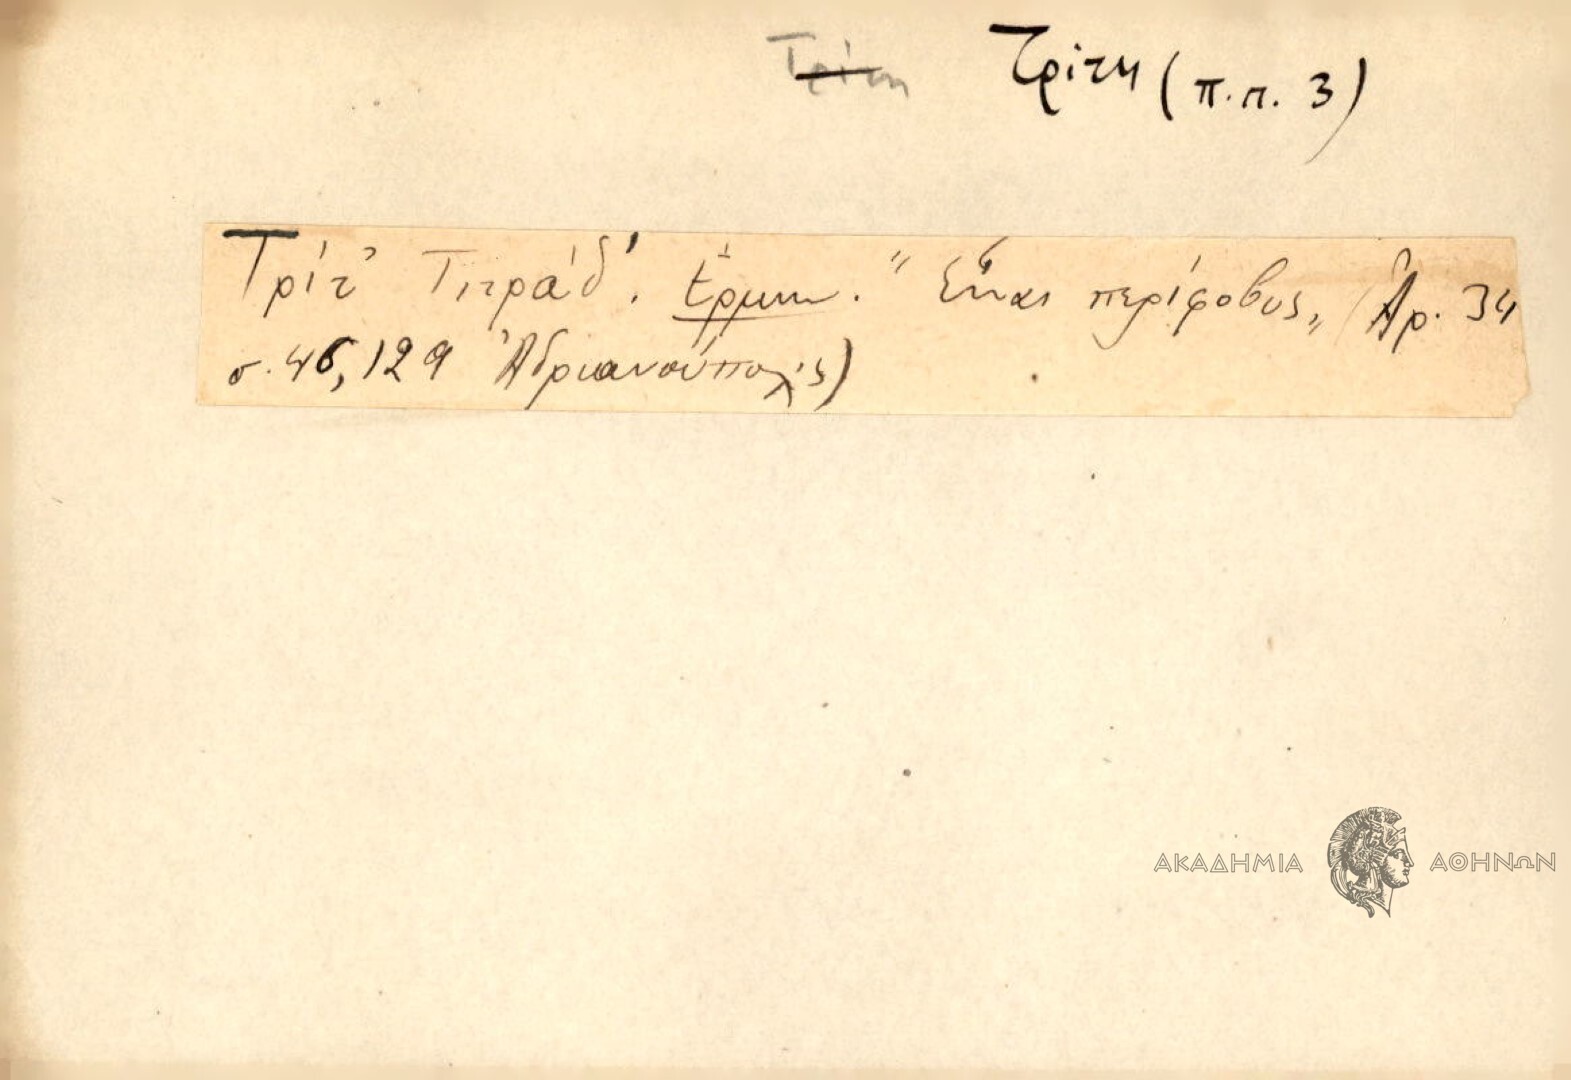 Τρίτη Τρίτη (π.π. 3)
Τρίτ' Τιτράδ'. Ἑρμην. " Εἶναι περίφοβος„ (Ἀρ. 34
σ. 46, 129 Ἀδριανούπολις)
ΑΚΑΔΗΜΙΑ ΑΘΗΝΩΝ